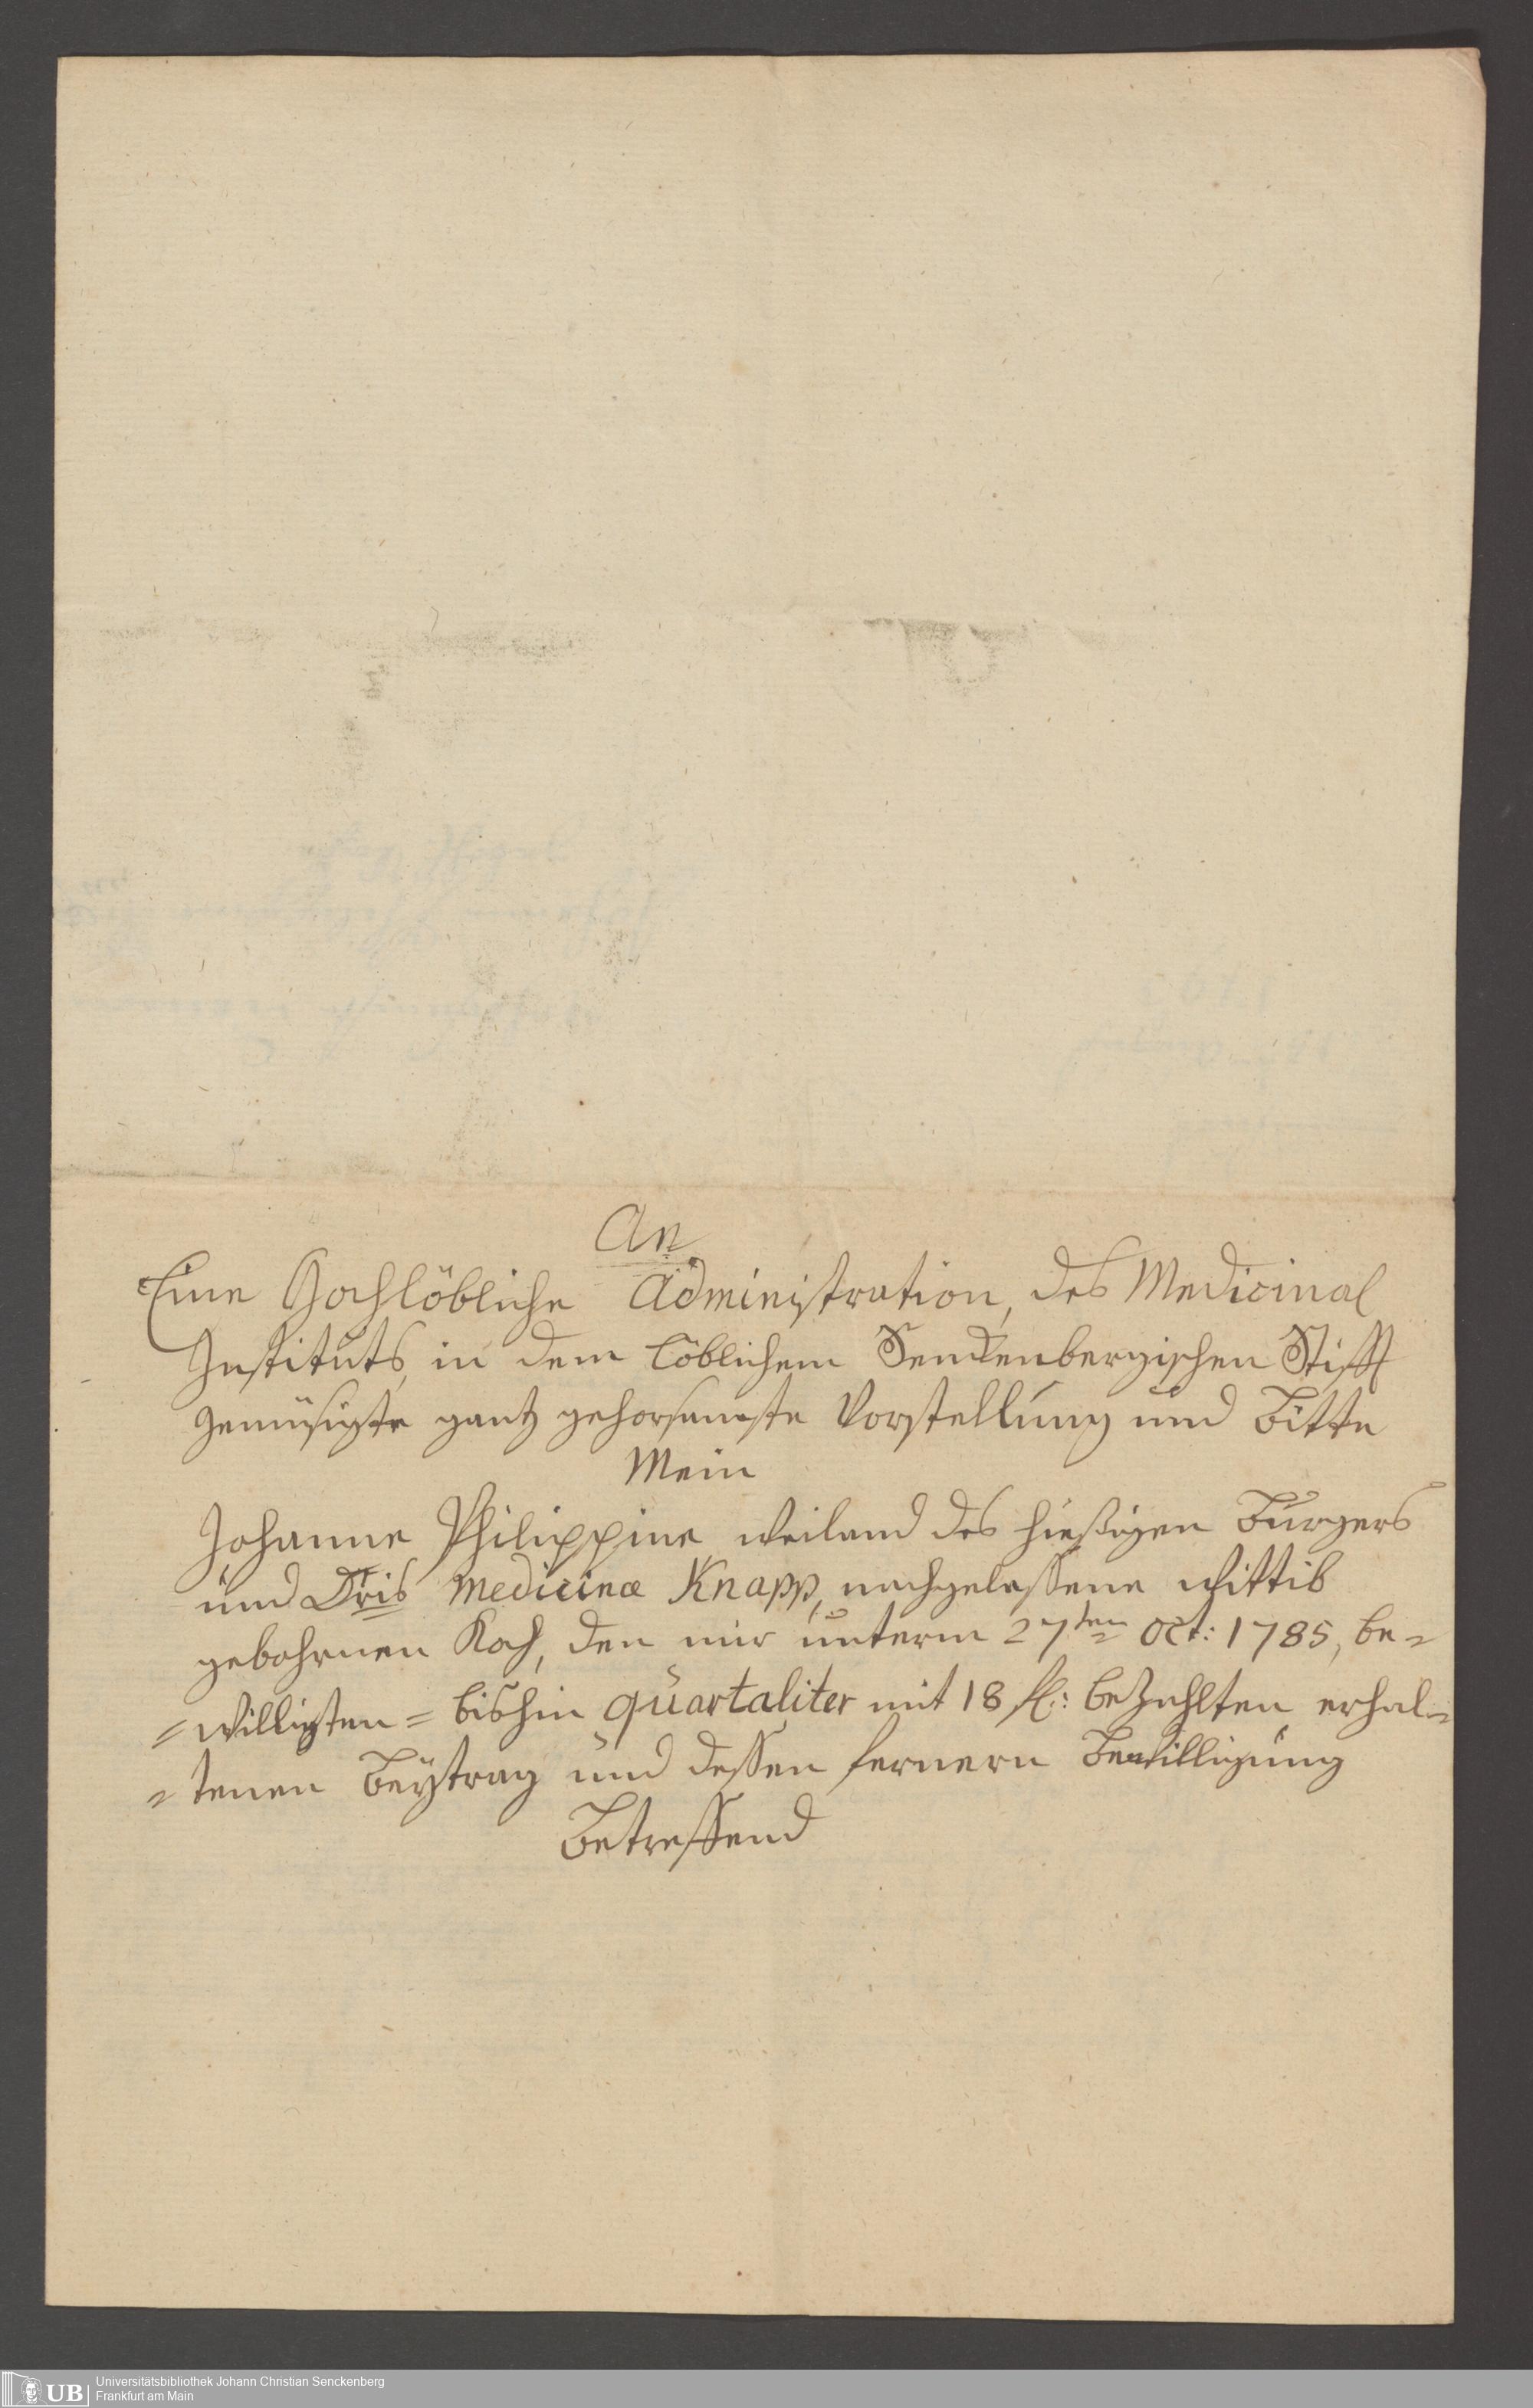 An
Eine Hochlöbliche Administration, des Medicinal
Instituts, in dem löblichem Senckenbergischen Stifft
gemüsigte gantz gehorsamste Vorstellung und Bitte
Mein
Johanne Philippine weiland des hießigen Burgers
und Dris Medicinæ Knapp, nachgelaßene Wittib
gebohrnen Koch, den mir unterm 27ten Oct: 1785, be=
=willigten = bishin quartaliter mit 18 fl: bezahlten erhal=
=tenen Beytrag und deßen fernern Bewilligung
Betreffend
UB
Universitätsbibliothek Johann Christian Senckenberg
Frankfurt am Main